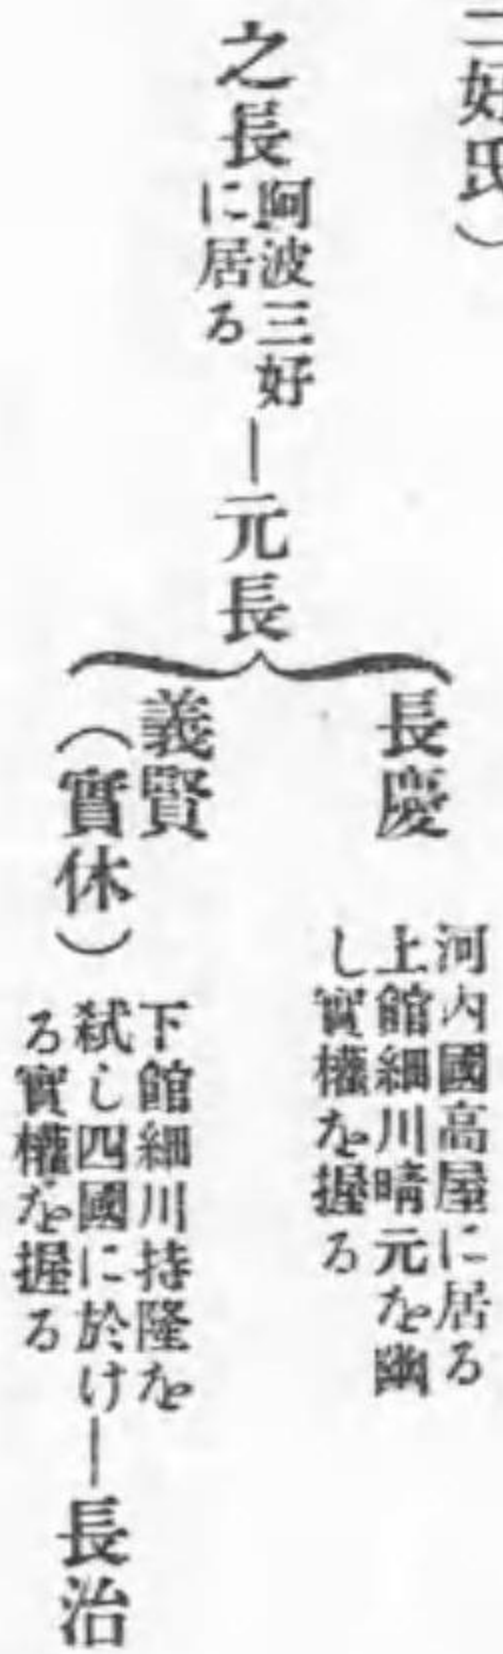 好氏）
之長
阿波三好
に居る
元長
長慶
河内國高屋に居る
上館細川晴元を幽
し實權を握る
義賢
（實休）
下館細川持隆を
弑し四國に於け
る實權を握る
長治